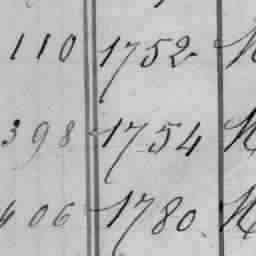 110 1752
398 1754
606 1780